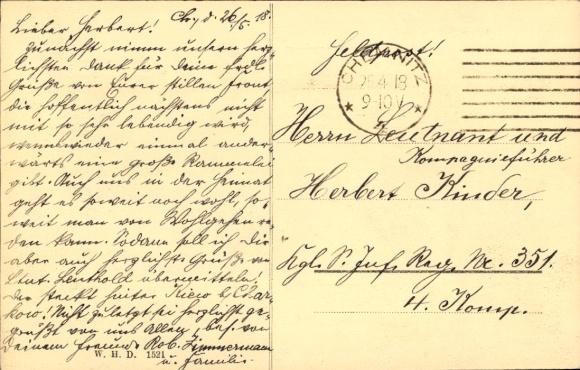 Ch., d. 26/5. 18.
Lieber Herbert!
Zunächst nimm unsern herz-
lichsten Dank für Deine frdl.
Grüße von Eurer stillen Front
die hoffentlich nächstens nicht
mit so sehr lebendig wird,
wenn wieder einmal ander-
wärts eine große Rammelei
gibt. Auch uns in der Heimat
geht es soweit noch wohl, so-
weit man von Wohlgehen re-
den kann. Sodann soll ich Dir
aber auch herzlichste Grüße von
Ltnt. Leuthold übermitteln!
Der steckt hinter Kiew b. Char-
kow! Nicht zuletzt sei herzlichst ge-
grüßt von uns Allen, bes. von
Deinem Freund Rob. Zimmermann
u. Familie.
W. H. D. 1521
Feldpost!
CHEMNITZ
4 18
9-10 V
Herrn Leutnant und
Kompagnieführer
Herbert Kinder,
Kgl. S. Inf. Reg. Nr. 351.
4. Komp.